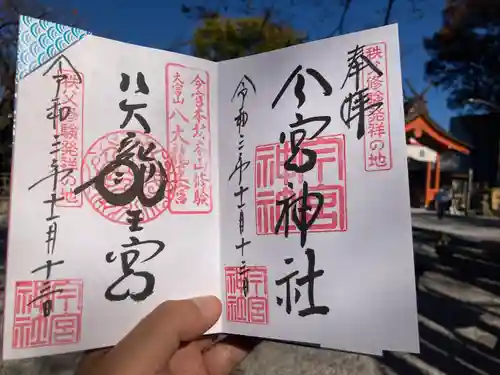 奉拝
秩父修験発祥の地
今宮神社
今宮神社
令和二年十一月十二日
今宮神社
今宮坊本山修験
大宮山 八大龍王宮
八大龍王宮
秩父修験発祥の地
令和二年十一月十二日
今宮神社